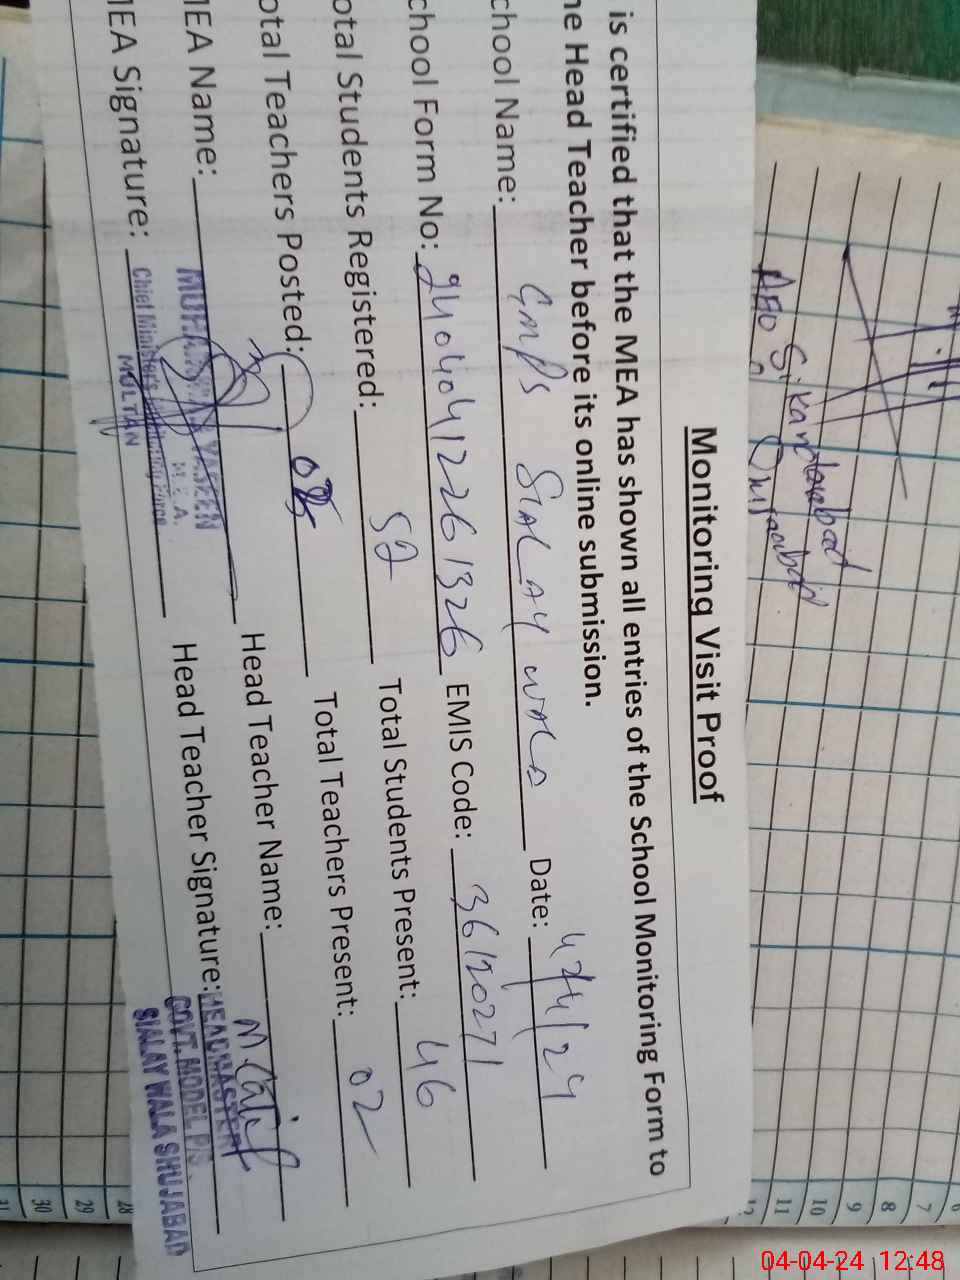 Monitoring Visit Proof
is certified that the MEA has shown all entries of the School Monitoring Form to
he Head Teacher before its online submission.
chool Name: GMPS SIAL AY WALA Date: 4/4/24
chool Form No: 24040412261326 EMIS Code: 36120271
otal Students Registered: 52 Total Students Present: 46
otal Teachers Posted: 02 Total Teachers Present: 02
MEA Name: YASEEN M.E.A. Head Teacher Name:
MEA Signature: Chief Ministers Monitoring Force MULTAN Head Teacher Signature: HEADMASTER
GOVT. MODEL P/S
SIALAY WALA SHUJABAD
AEO Sikandarabad
7
8
9
10
11
12
28
29
30
31
04-04-24 12:48